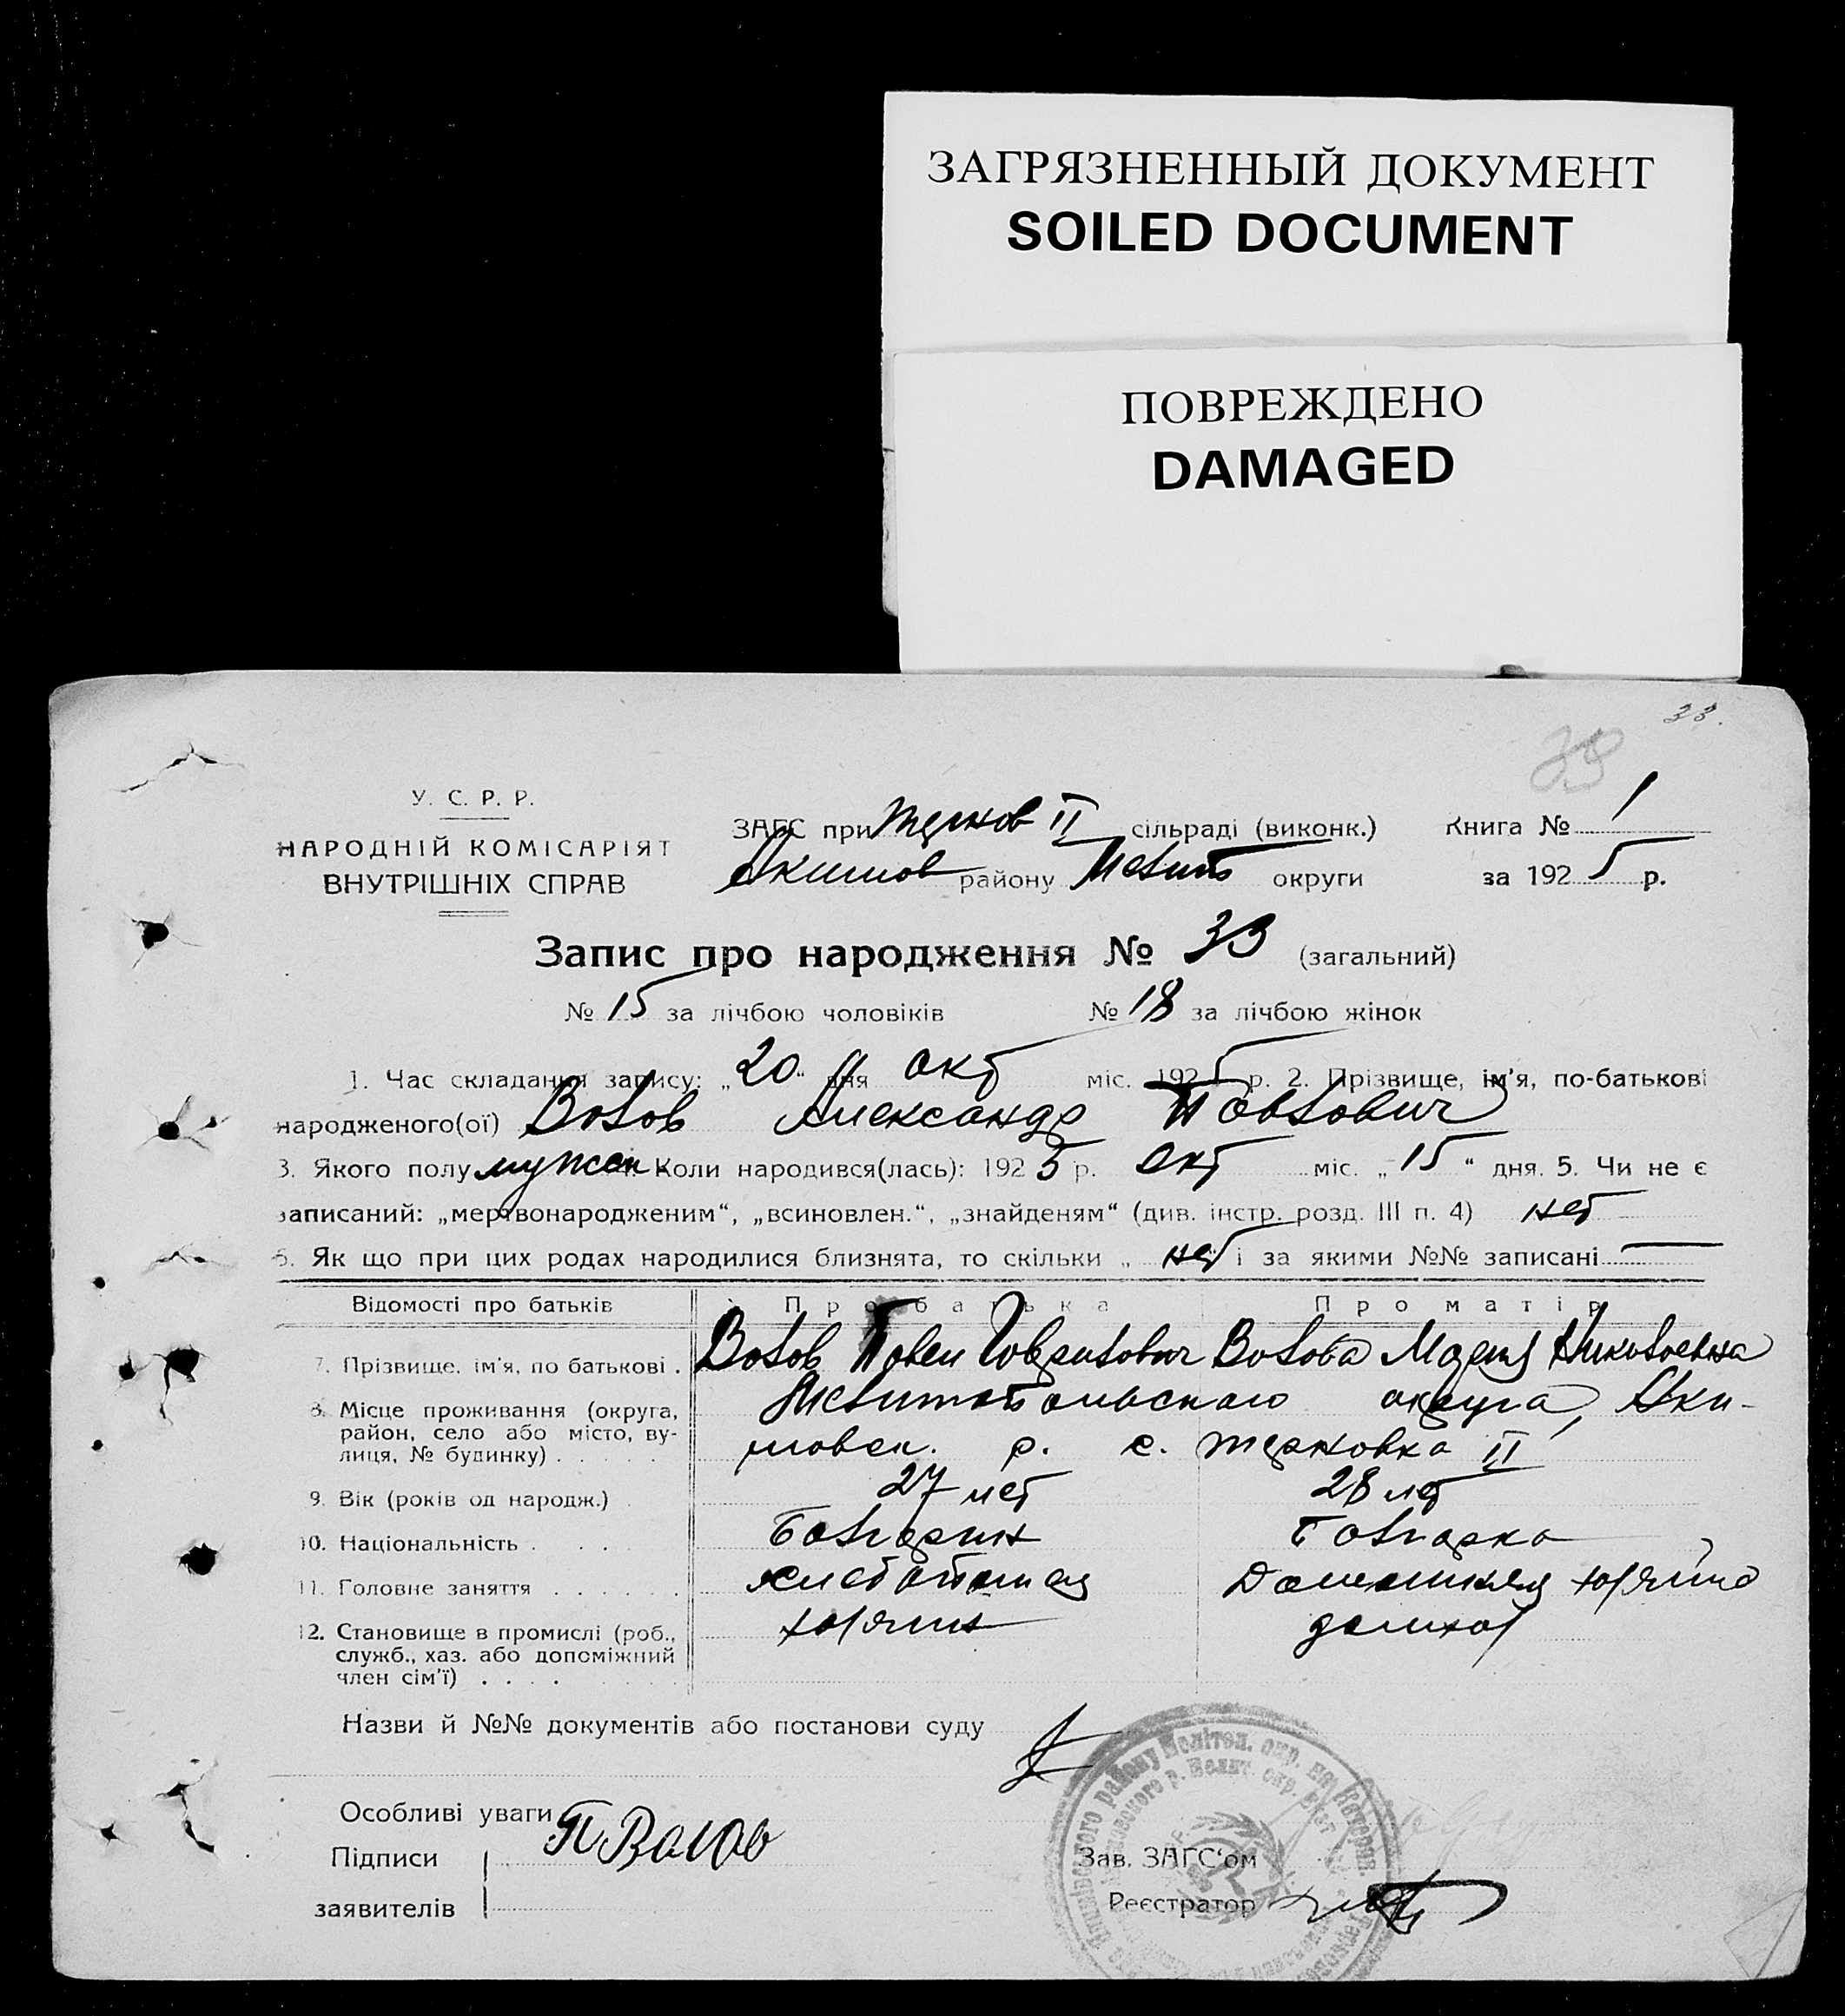 ЗАГРЯЗНЕННЫЙ ДОКУМЕНТ
SOILED DOCUMENT
ПОВРЕЖДЕНО
DAMAGED
33.
33
У. С. Р. Р.
НАРОДНІЙ КОМІСАРІЯТ
ВНУТРІШНІХ СПРАВ
ЗАГС при Тернов II сільраді (виконк.) Книга № 1
Акимов району Мелит округи за 1925 р.
Запис про народження № 33 (загальний)
№ 15 за лічбою чоловіків № 18 за лічбою жінок
1. Час складання запису: „20“ дня окт міс. 1925 р. 2. Прізвище, ім'я, по-батькові
народженого(ої) Волов Александр Павлович
3. Якого полу мужск Коли народився(лась): 1925 р. окт міс. „15“ дня. 5. Чи не є
записаний: „мертвонародженим“, „всиновлен.“, „знайденям“ (див. інстр. розд. III п. 4) нет
6. Як що при цих родах народилися близнята, то скільки „ нет і за якими №№ записані —
Відомості про батьків Про батька Про матір
7. Прізвище, ім'я, по батькові . Волов Павел Гаврилович Волова Мария Николаевна
8. Місце проживання (округа, район, село або місто, вулиця, № будинку) . . . . . Мелитопольского округа, Аки-
мовск. р. с. Терновка II
9. Вік (років од народж.) . 27 лет 28 лет
10. Національність . . . Болгарин Болгарка
11. Головне заняття . . . . . . хлебопашец Домашняя
12. Становище в промислі (роб., служб., хаз. або допоміжний член сім'ї) . . . .
Назви й №№ документів або постанови суду
Особливі уваги
Підписи П Волов Зав. ЗАГС'ом
заявителів Реєстратор